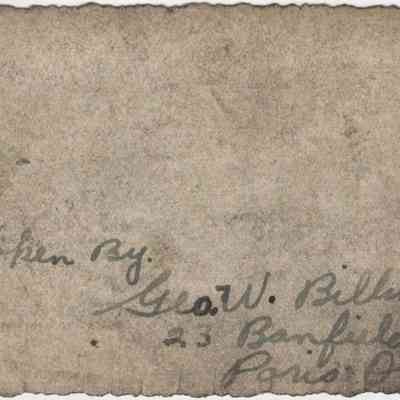 ken By.
Geo. W. Bill
23 Banfield
Paris.